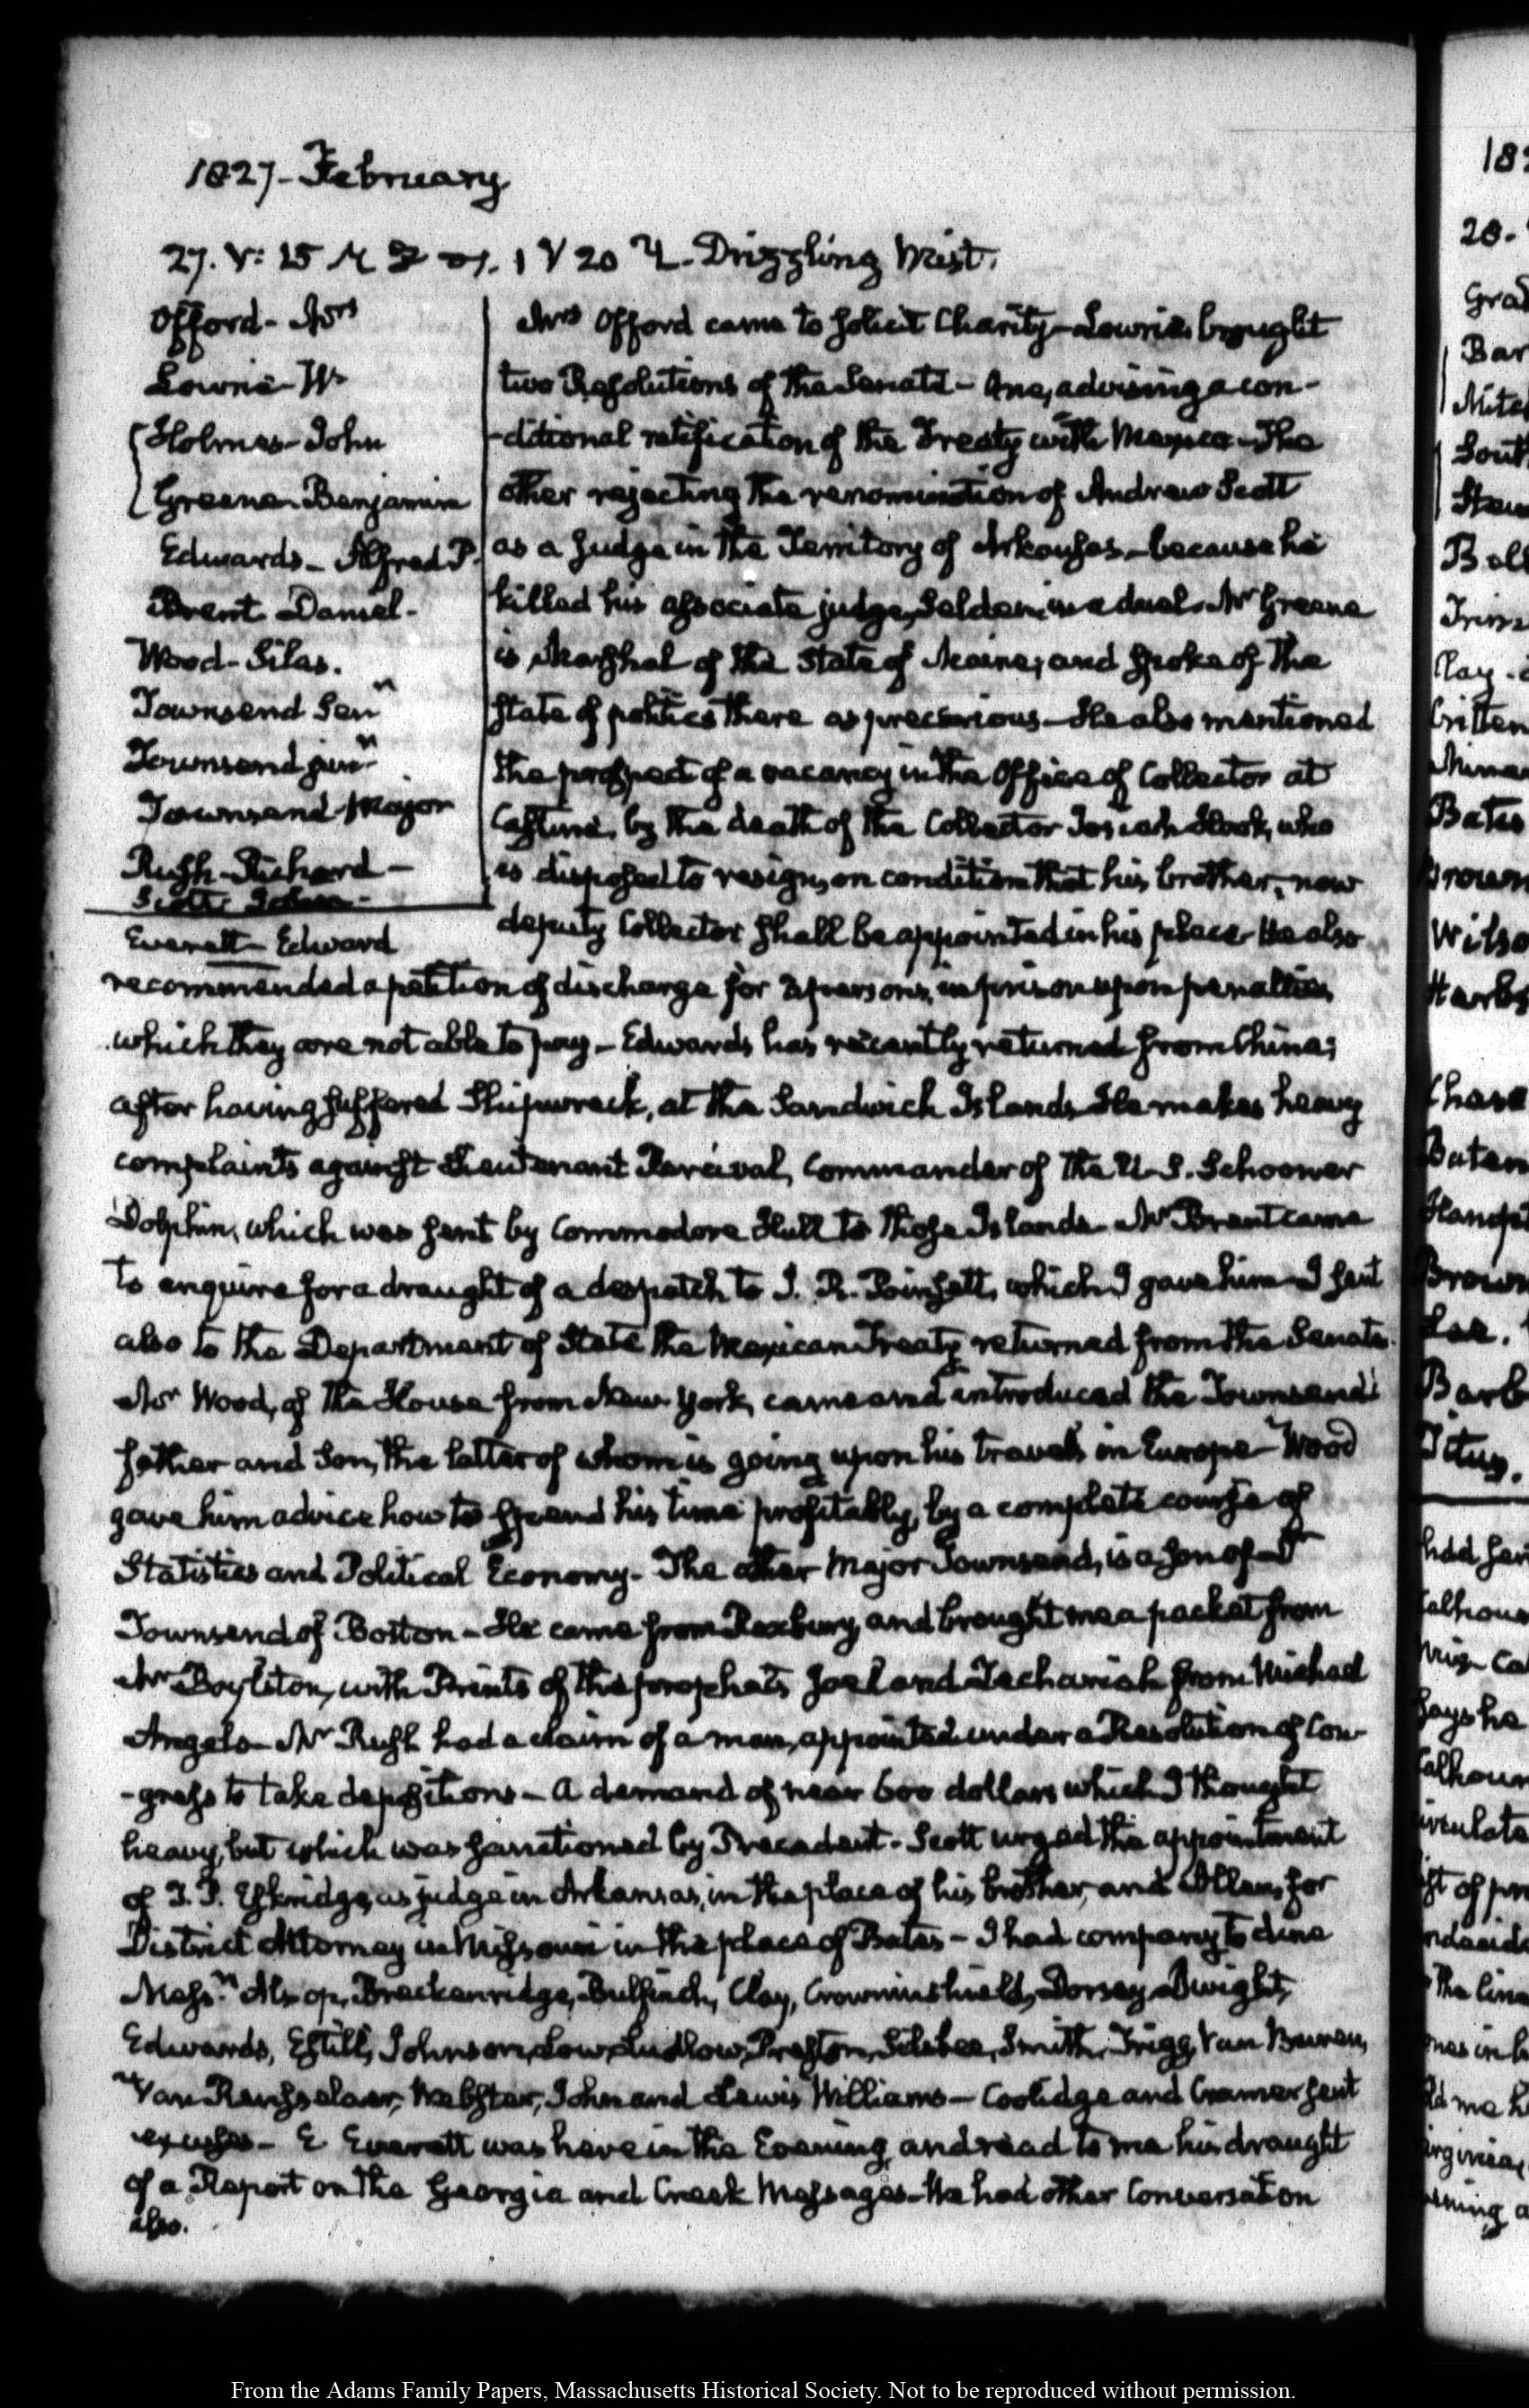 1827- February
27. V: 15 Drizzling Mist.
Offord- Mrs
Lowrie- Wr
Holmes- John
Greene- Benjamin
Edwards- Alfred P.
Brent Daniel-
Wood- Silas.
Townsend Senr
Townsend junr
Townsend- Major
Rush- Richard-
Scott John-
Everett- Edward
Mrs Offord came to solicit Charity- Lowrie brought
two Resolutions of the Senate- One, advising a con-
-ditional ratification of the Treaty with Mexico- The
other rejecting the renomination of Andrew Scott
as a judge in the Territory of Arkansas- because he
killed his associate judge, Selden in a duel. Mr Greene
is Marshal of the State of Maine, and spoke of the
state of politics there as precarious- He also mentioned
the prospect of a vacancy in the Office of Collector at
Castine, by the death of the Collector Josiah Hook, who
is disposed to resign, on condition that his brother, now
deputy Collector shall be appointed in his place- He also
recommended a petition of discharge for persons, in prison upon penalties
which they are not able to pay- Edwards has recently returned from China;
after having suffered Shipwreck, at the Sandwich Islands. He makes heavy
complaints against Lieutenant Percival, Commander of the U.S. Schooner
Dolphin, which was sent by Commodore Hull to those Islands- Mr Brent came
to enquire for a draught of a despatch to J. R. Poinsett, which I gave him- I sent
also to the Department of State the Mexican Treaty returned from the Senate.
Mr Wood, of the House from New York, came and introduced the Townsends
father and Son, the latter of whom is going upon his travels in Europe- Wood
gave him advice how to spend his time profitably, by a complete course of
Statistics and Political Economy- The other Major Townsend, is a son of Dr
Townsend of Boston- He came from Roxbury, and brought me a packet from
Mr Boylston, with Prints of the prophets Joel and Zechariah from Michael
Angelo- Mr Rush had a claim of a man, appointed under a Resolution of Con-
-gress to take depositions- A demand of near 600 dollars which I thought
heavy, but which was sanctioned by Precedent- Scott urged the appointment
of T. P. Eskridge, as judge in Arkansas, in the place of his brother, and Allen, for
District Attorney in Missouri in the place of Bates- I had company to dine
Messrs Alsop, Breckenridge, Bulfinch, Clay, Crowninshield, Dorsey, Dwight,
Edwards, Estill, Johnson, Low, Ludlow, Preston, Silsbee, Smith, Trigg, Van Buren,
Van Rensselaer, Webster, John and Lewis Williams- Coolidge and Cramer sent
excuses- E Everett was here in the Evening, and read to me his draught
of a Report on the Georgia and Creek Messages- We had other Conversation
also.
From the Adams Family Papers, Massachusetts Historical Society. Not to be reproduced without permission.